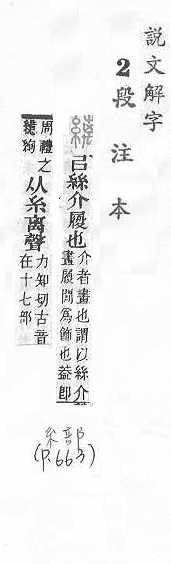 說文解字
2段注本
縭 㠯絲介履也 介者畫也謂以絲介
畫履間爲飾也葢卽
周禮之
繶絇
从糸离聲 力知切古音
在十七部
糸部
(P.663)